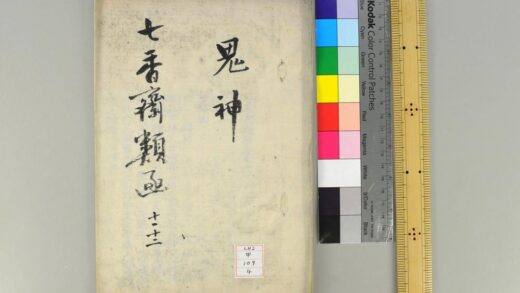 鬼神
七香齋類函 十一十二
Kodak
Color Control Patches
Blue
Cyan
Green
Yellow
Red
Magenta
White
3/Color
Black
LH2
甲
109
4